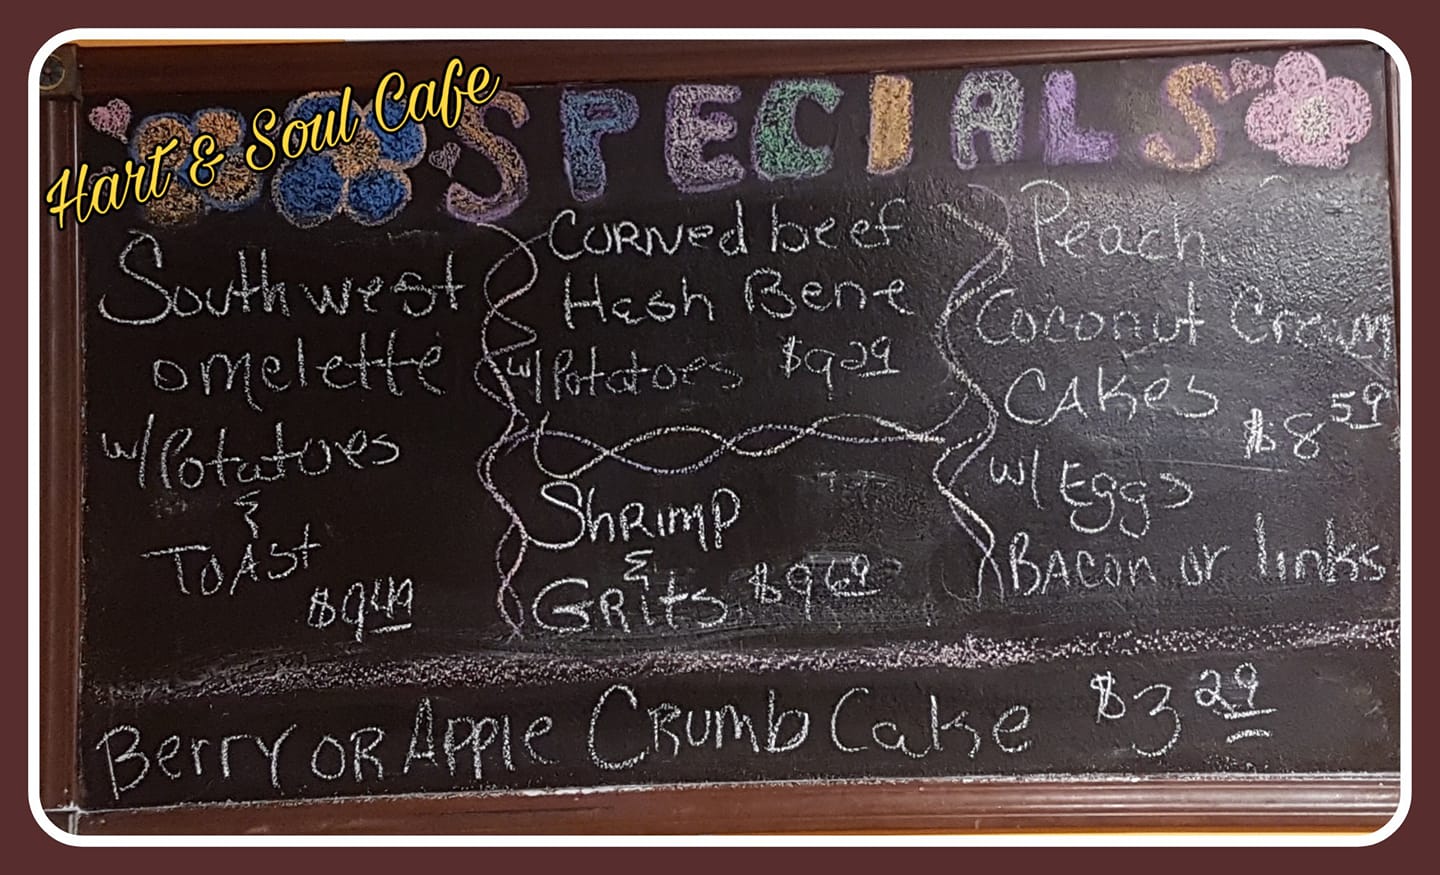 Hart & Soul Cafe
SPECIALS
Southwest
omelette
w/Potatoes
&
TOAST
$9.49
CORNed beef
Hash Bene
w/Potatoes $9.29
ShRIMP
&
GRits $9.69
Peach
Coconut Cream
CAKes
$8.59
w/ Eggs
BAcon or links
Berry OR Apple CRumb Cake $3.29